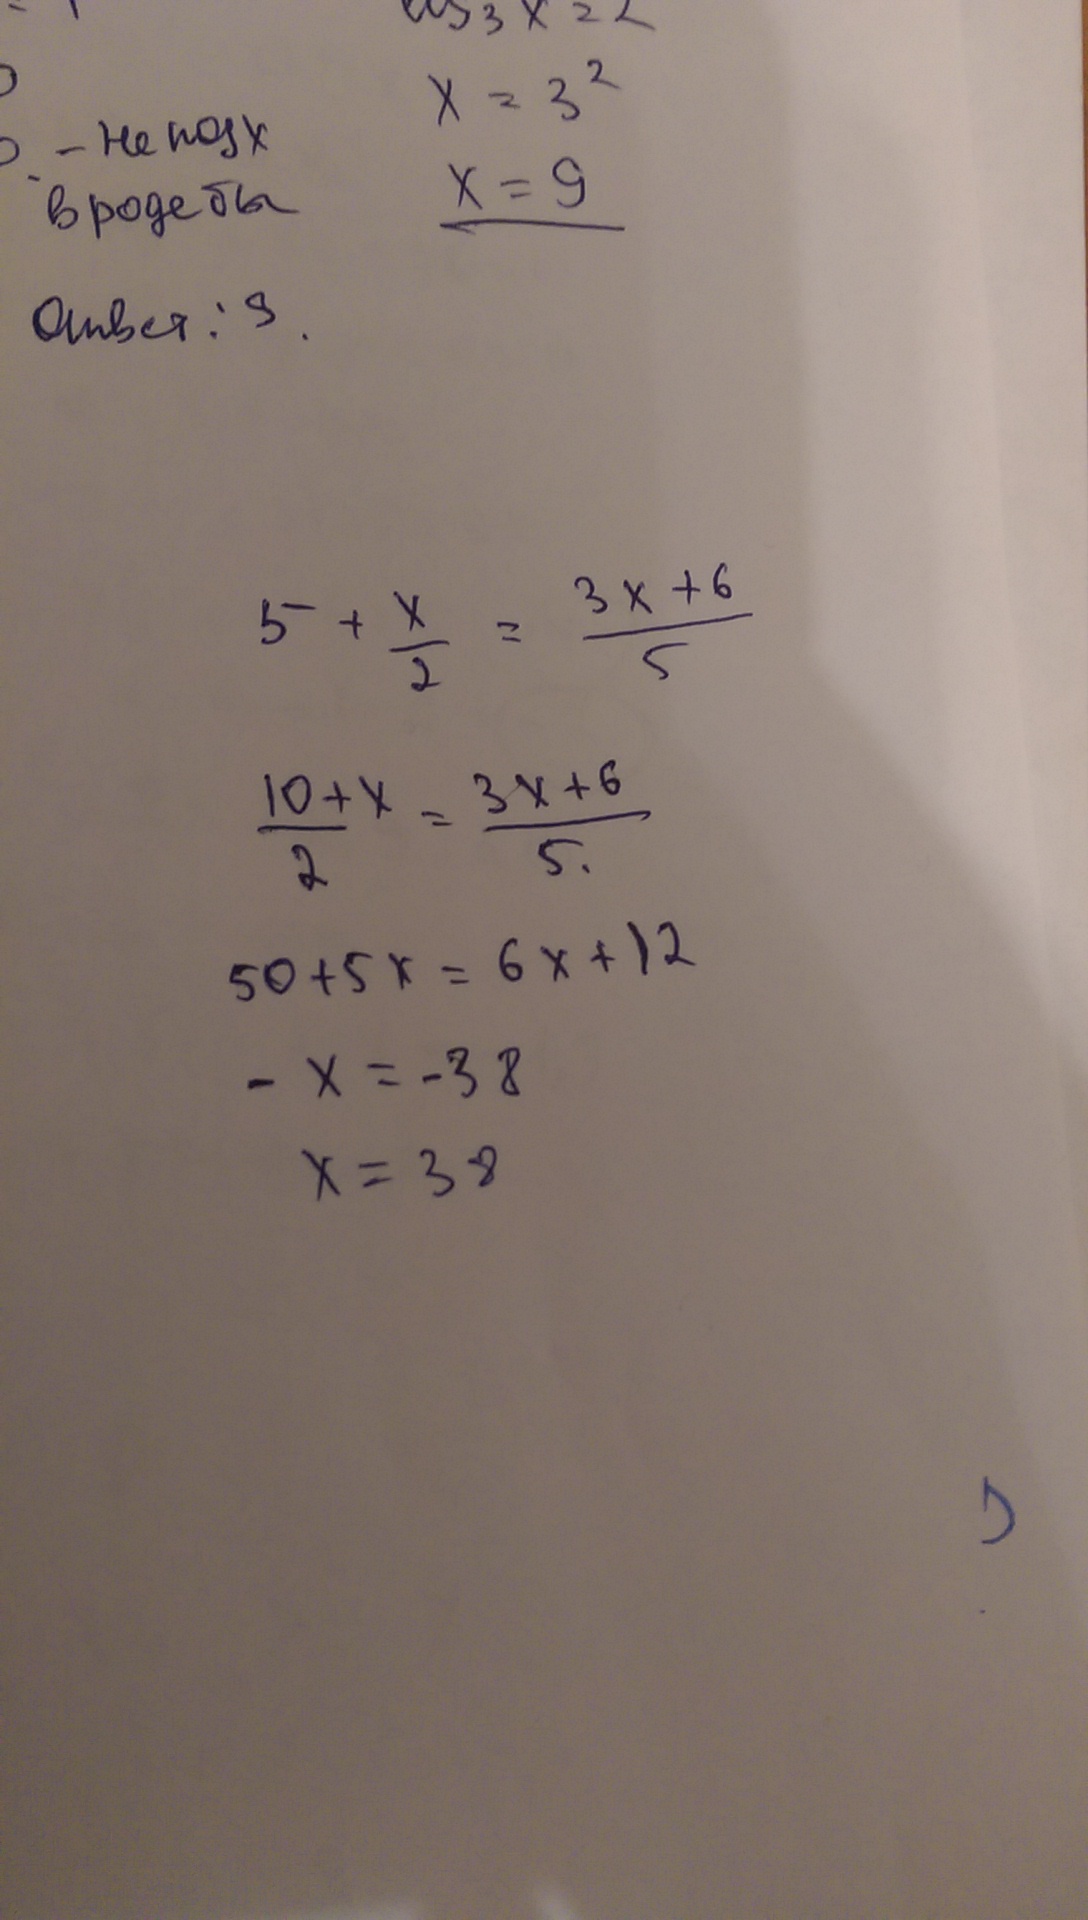 log₃ x = 2
x = 3²
- не подх
x = 9
вроде бы
Ответ: 9.
5 + x/2 = (3x+6)/5
(10+x)/2 = (3x+6)/5.
50+5x = 6x+12
- x = -38
x = 38